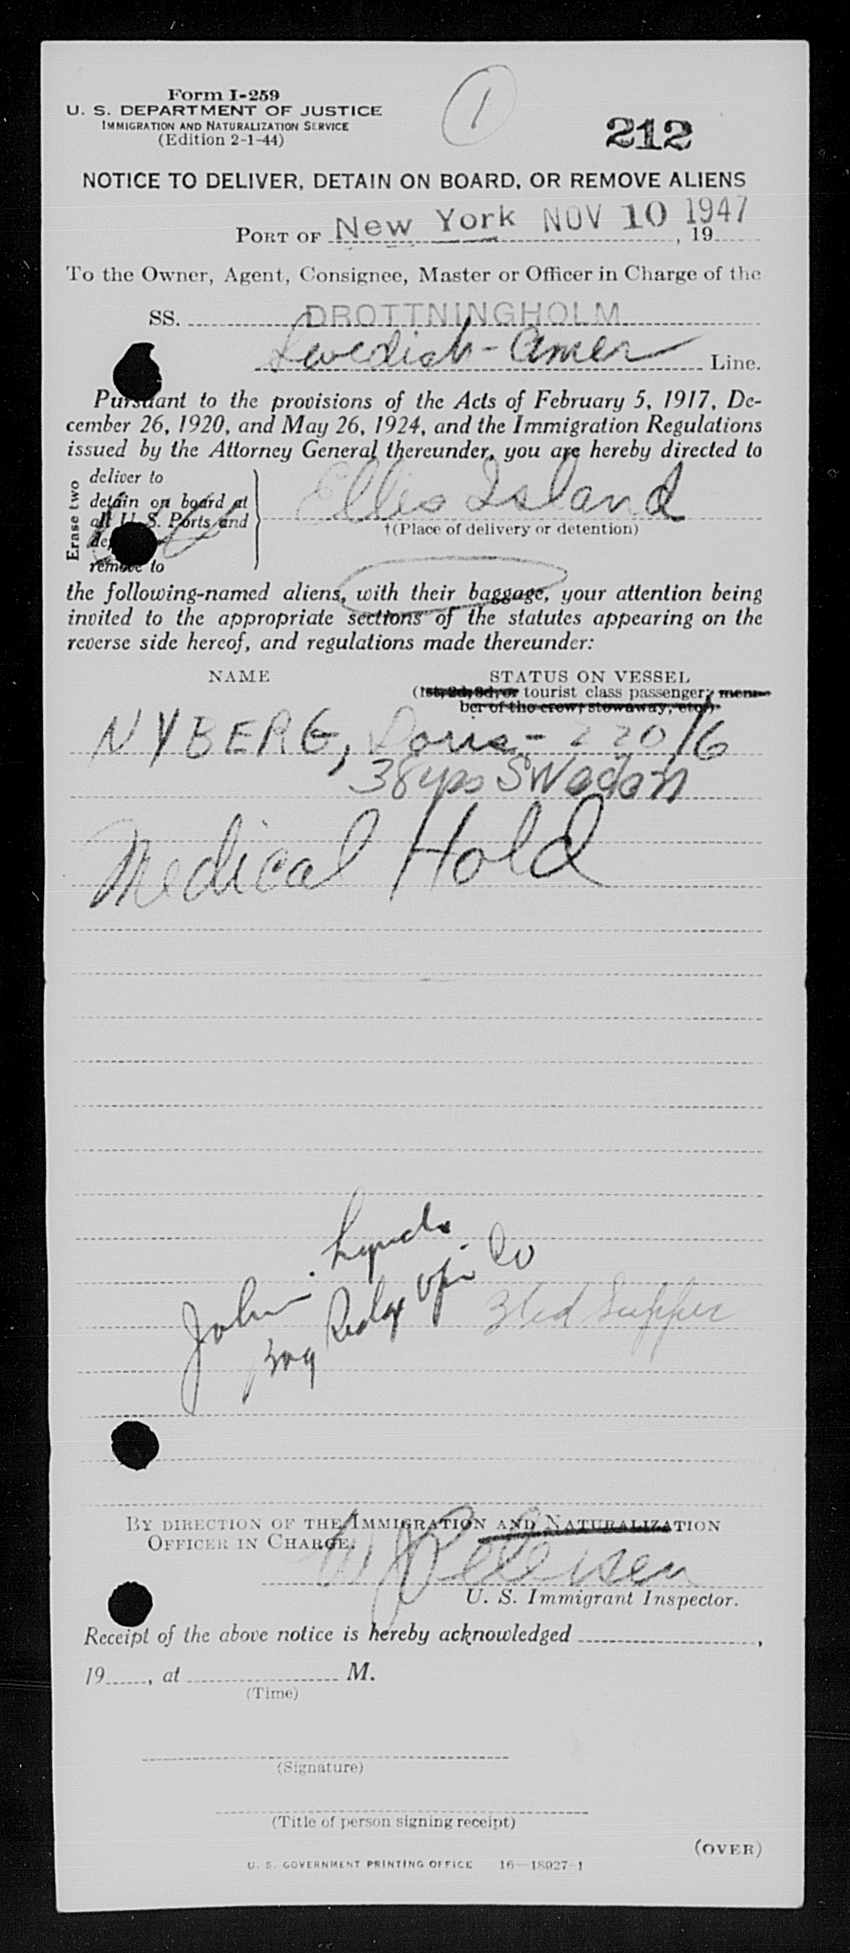 Form I-259
U. S. DEPARTMENT OF JUSTICE
IMMIGRATION AND NATURALIZATION SERVICE
(Edition 2-1-44)
1
212
NOTICE TO DELIVER, DETAIN ON BOARD, OR REMOVE ALIENS
PORT OF New York NOV 10 1947, 19
To the Owner, Agent, Consignee, Master or Officer in Charge of the
SS. DROTTNINGHOLM
Swedish-Amer Line.
Pursuant to the provisions of the Acts of February 5, 1917, De-
cember 26, 1920, and May 26, 1924, and the Immigration Regulations
issued by the Attorney General thereunder, you are hereby directed to
Erase two
deliver to
detain on board at
all U. S. Ports and
remove to
Ellis Island
†(Place of delivery or detention)
the following-named aliens, with their baggage, your attention being
invited to the appropriate sections of the statutes appearing on the
reverse side hereof, and regulations made thereunder:
NAME STATUS ON VESSEL
(1st, 2d, 3d, or tourist class passenger; mem-
ber of the crew; stowaway, etc.)
NYBERG, Doris - 220/6
38 yrs Sweden
Medical Hold
John Lynch
Bay Ridge Opr Co
3td Supper
BY DIRECTION OF THE IMMIGRATION AND NATURALIZATION
OFFICER IN CHARGE.
W Petersen
U. S. Immigrant Inspector.
Receipt of the above notice is hereby acknowledged ,
19 , at M.
(Time)
(Signature)
(Title of person signing receipt)
(OVER)
U. S. GOVERNMENT PRINTING OFFICE 16—18927-1